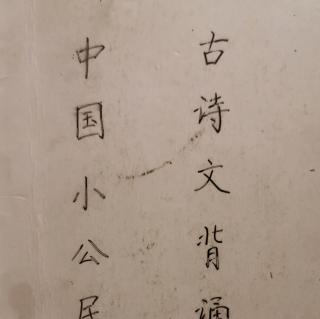 古诗文背诵
中国小公民